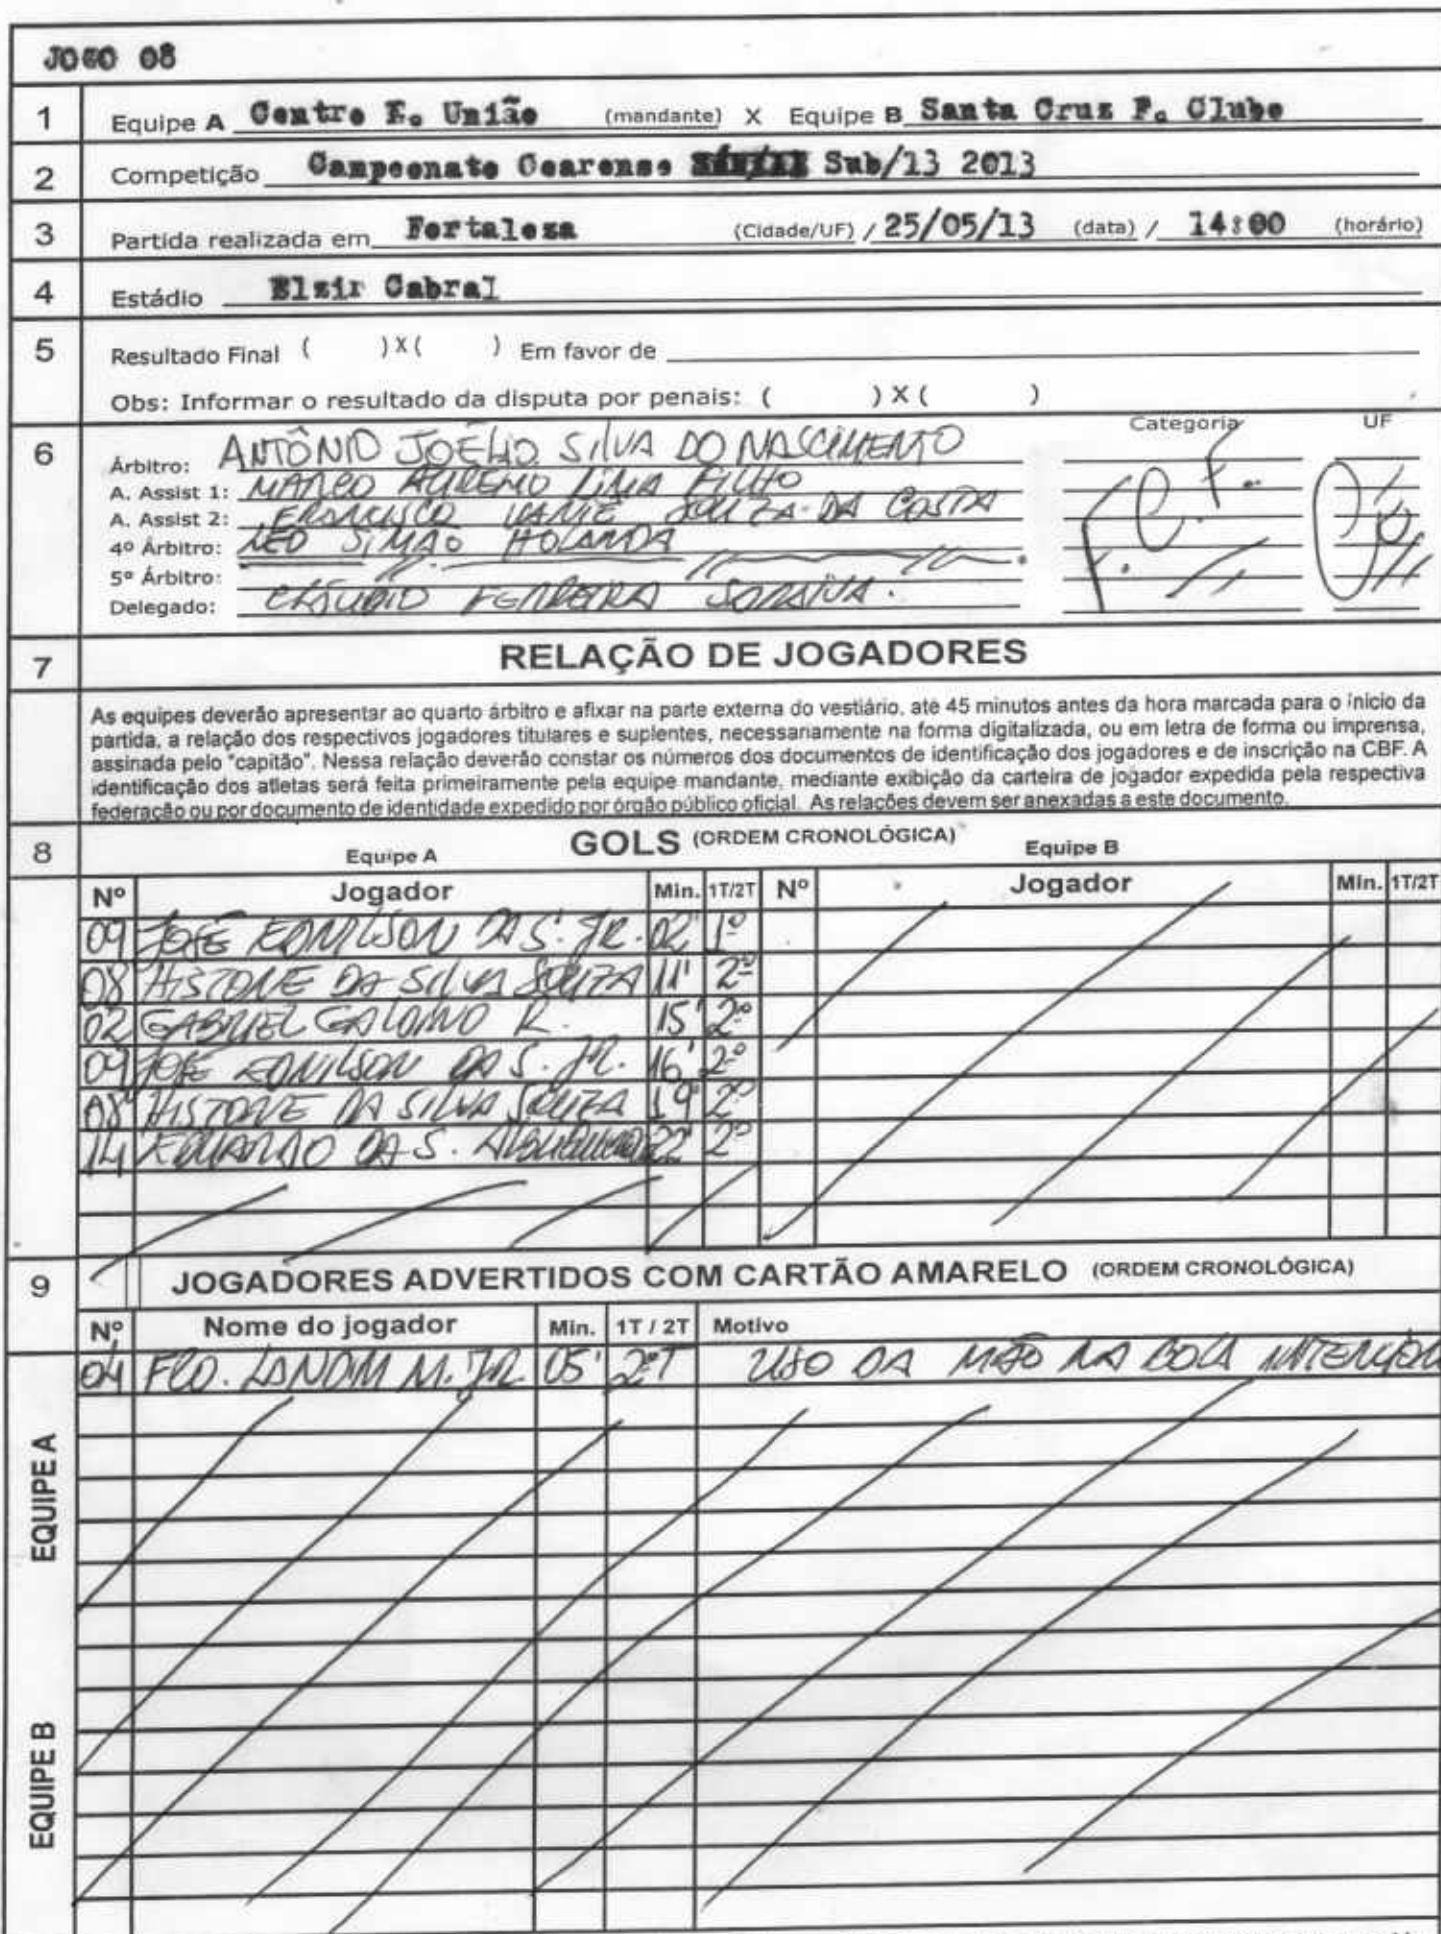 JOGO 08
1 Equipe A Centro E. União (mandante) X Equipe B Santa Cruz F. Clube
2 Competição Campeonato Cearense Sub/13 2013
3 Partida realizada em Fortaleza (Cidade/UF) / 25/05/13 (data) / 14:00 (horário)
4 Estádio Elzir Cabral
5 Resultado Final ( ) X ( ) Em favor de
Obs: Informar o resultado da disputa por penais: ( ) X ( )
Categoria UF
6 Árbitro: ANTÔNIO JOÉLIO SILVA DO NASCIMENTO
A. Assist 1: MARCO AURÉLIO LIMA FILHO
A. Assist 2: FRANCISCO SOUZA DA COSTA
4º Árbitro: LEO SIMÃO HOLANDA
5º Árbitro:
Delegado: CLÁUDIO FERREIRA SORAIVA.
7 RELAÇÃO DE JOGADORES
As equipes deverão apresentar ao quarto árbitro e afixar na parte externa do vestiário, até 45 minutos antes da hora marcada para o início da
partida, a relação dos respectivos jogadores titulares e suplentes, necessariamente na forma digitalizada, ou em letra de forma ou imprensa,
assinada pelo "capitão". Nessa relação deverão constar os números dos documentos de identificação dos jogadores e de inscrição na CBF. A
identificação dos atletas será feita primeiramente pela equipe mandante, mediante exibição da carteira de jogador expedida pela respectiva
federação ou por documento de identidade expedido por órgão público oficial. As relações devem ser anexadas a este documento.
8 Equipe A GOLS (ORDEM CRONOLÓGICA) Equipe B
Nº Jogador Min. 1T/2T Nº Jogador Min. 1T/2T
09 JOSÉ EDNILSON DA S. JR. 02' 1º
08 HISTONE DA SILVA SOUZA 11' 2º
02 GABRIEL GALDINO R. 15' 2º
09 JOSÉ EDNILSON DA S. JR. 16' 2º
08 HISTONE DA SILVA SOUZA 19' 2º
14 EDUARDO DA S. ALBUQUERQUE 22' 2º
9 JOGADORES ADVERTIDOS COM CARTÃO AMARELO (ORDEM CRONOLÓGICA)
Nº Nome do jogador Min. 1T / 2T Motivo
04 FCO. LANDIM M. JR. 05' 2ºT USO DA MÃO NA BOLA
EQUIPE A
EQUIPE B